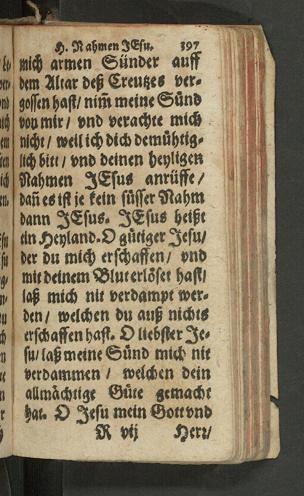 H. Nahmen JEsu. 397
mich armen Sünder auff
dem Altar deß Creutzes ver-
gossen hast/ nim̃ meine Sünd
von mir/ vnd verachte mich
nicht/ weil ich dich demühtig-
lich bitt/ vnd deinen heyligen
Nahmen JEsus anrüffe/
dañ es ist je kein süsser Nahm
dann JEsus. JEsus heißt
ein Heyland. O gütiger Jesu/
der du mich erschaffen/ vnd
mit deinem Blut erlöset hast/
laß mich nit verdampt wer-
den/ welchen du auß nichts
erschaffen hast. O liebster Je-
su/ laß meine Sünd mich nit
verdammen/ welchen dein
allmächtige Güte gemacht
hat. O Jesu mein Gott vnd
R vij Herr/